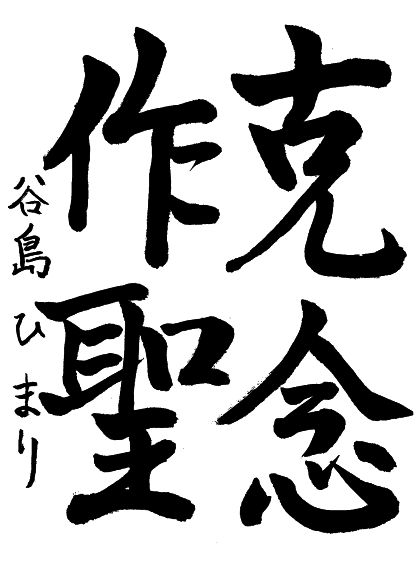 克念
作聖
谷島ひまり